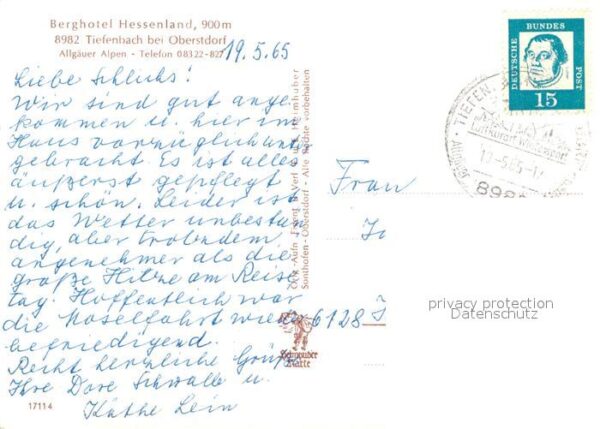 Berghotel Hessenland, 900m
8982 Tiefenbach bei Oberstdorf
Allgäuer Alpen - Telefon 08322-827
19.5.65
Liebe Schlucks!
Wir sind gut ange-
kommen u. hier im
Haus vorzüglich unter-
gebracht. Es ist alles
äußerst gepflegt
u. schön. Leider ist
das Wetter unbestän-
dig, aber trotzdem
angenehmer als die
große Hitze am Reise-
tag. Hoffentlich war
die Moselfahrt wieder
befriedigend.
Recht herzliche Grüße
Ihre Dore Schwalle u.
Käthe Lein
17114
Sonthofen-Oberstdorf - Alle Rechte vorbehalten
Heimhuber
Karte
DEUTSCHE
BUNDES
POST
15
TIEFEN
898
Frau
6128
privacy protection
Datenschutz